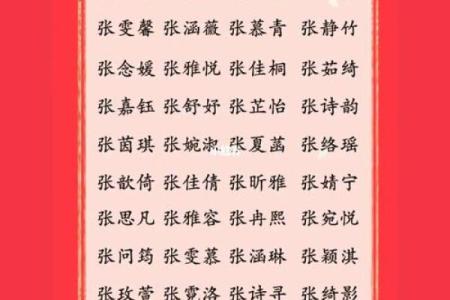 张雯馨 张涵薇 张慕青 张静竹
张念媛 张雅悦 张佳桐 张茹绮
张嘉钰 张舒妤 张芷怡 张诗韵
张茵琪 张婉淑 张夏菡 张络瑶
张歆倚 张佳倩 张昕雅 张婧宁
张思凡 张雅容 张冉熙 张宛悦
张问筠 张雯慕 张涵琳 张颖淇
张玫萱 张霓洛 张诗寻 张绮影